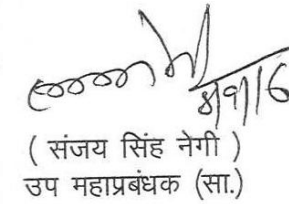 ( संजय सिंह नेगी )
उप महाप्रबंधक (सा.)